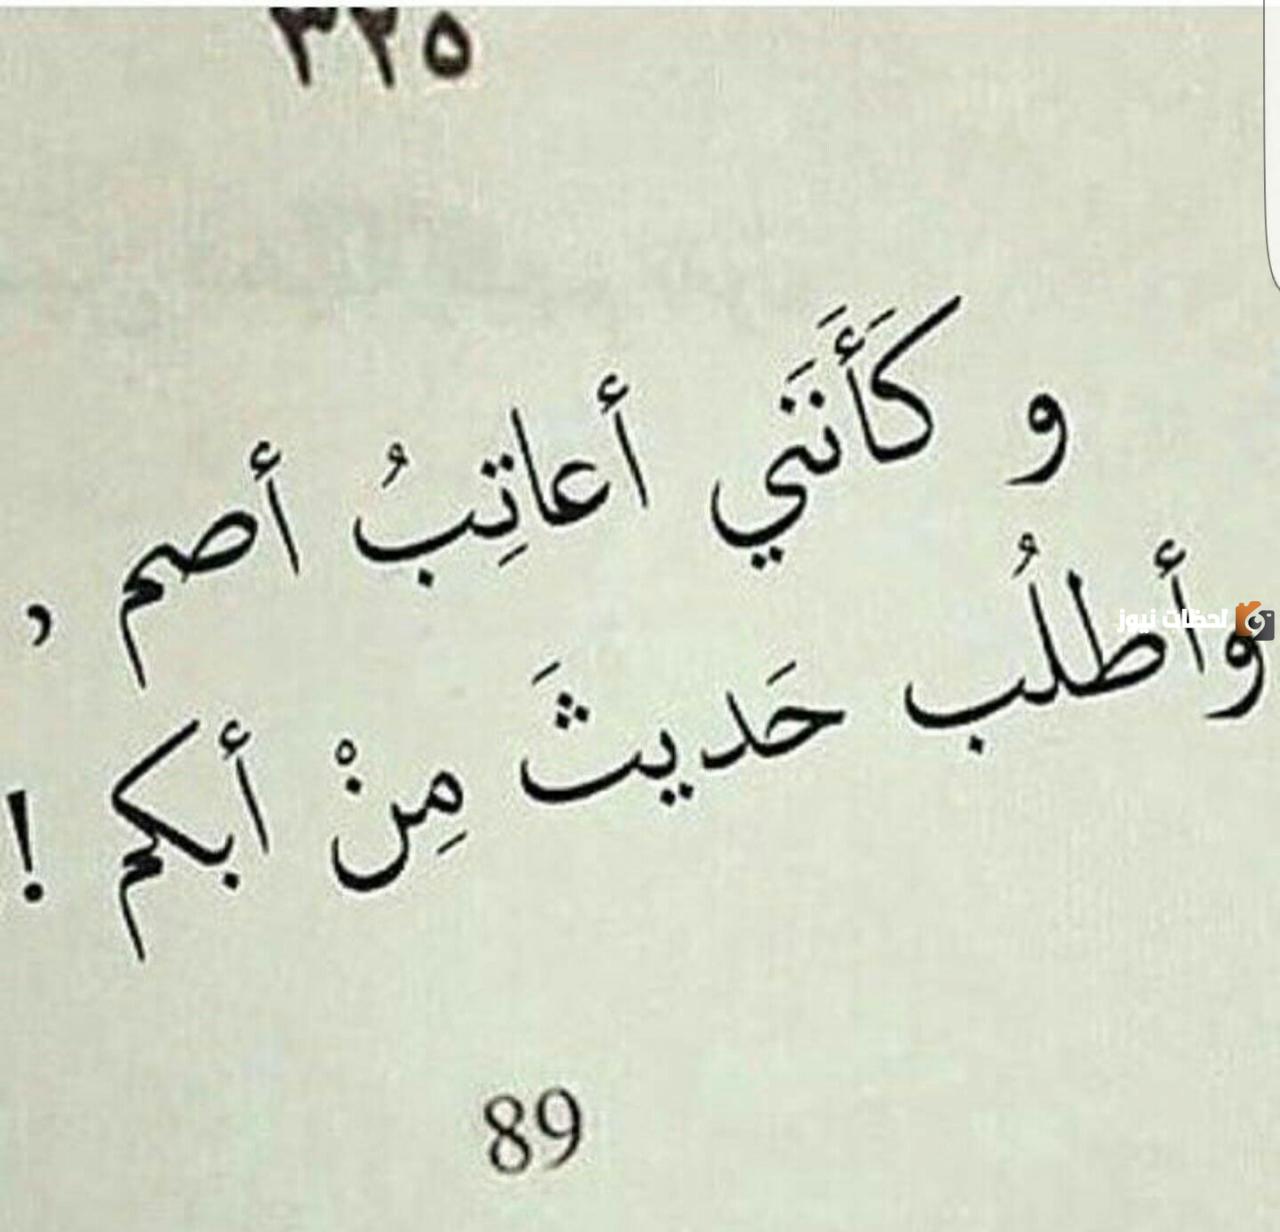 ٣٢٥
و كَأَنَني أعاتِبُ أصم ,
وأطلُب حَديثَ مِنْ أبكم !
لحظات نيوز
89